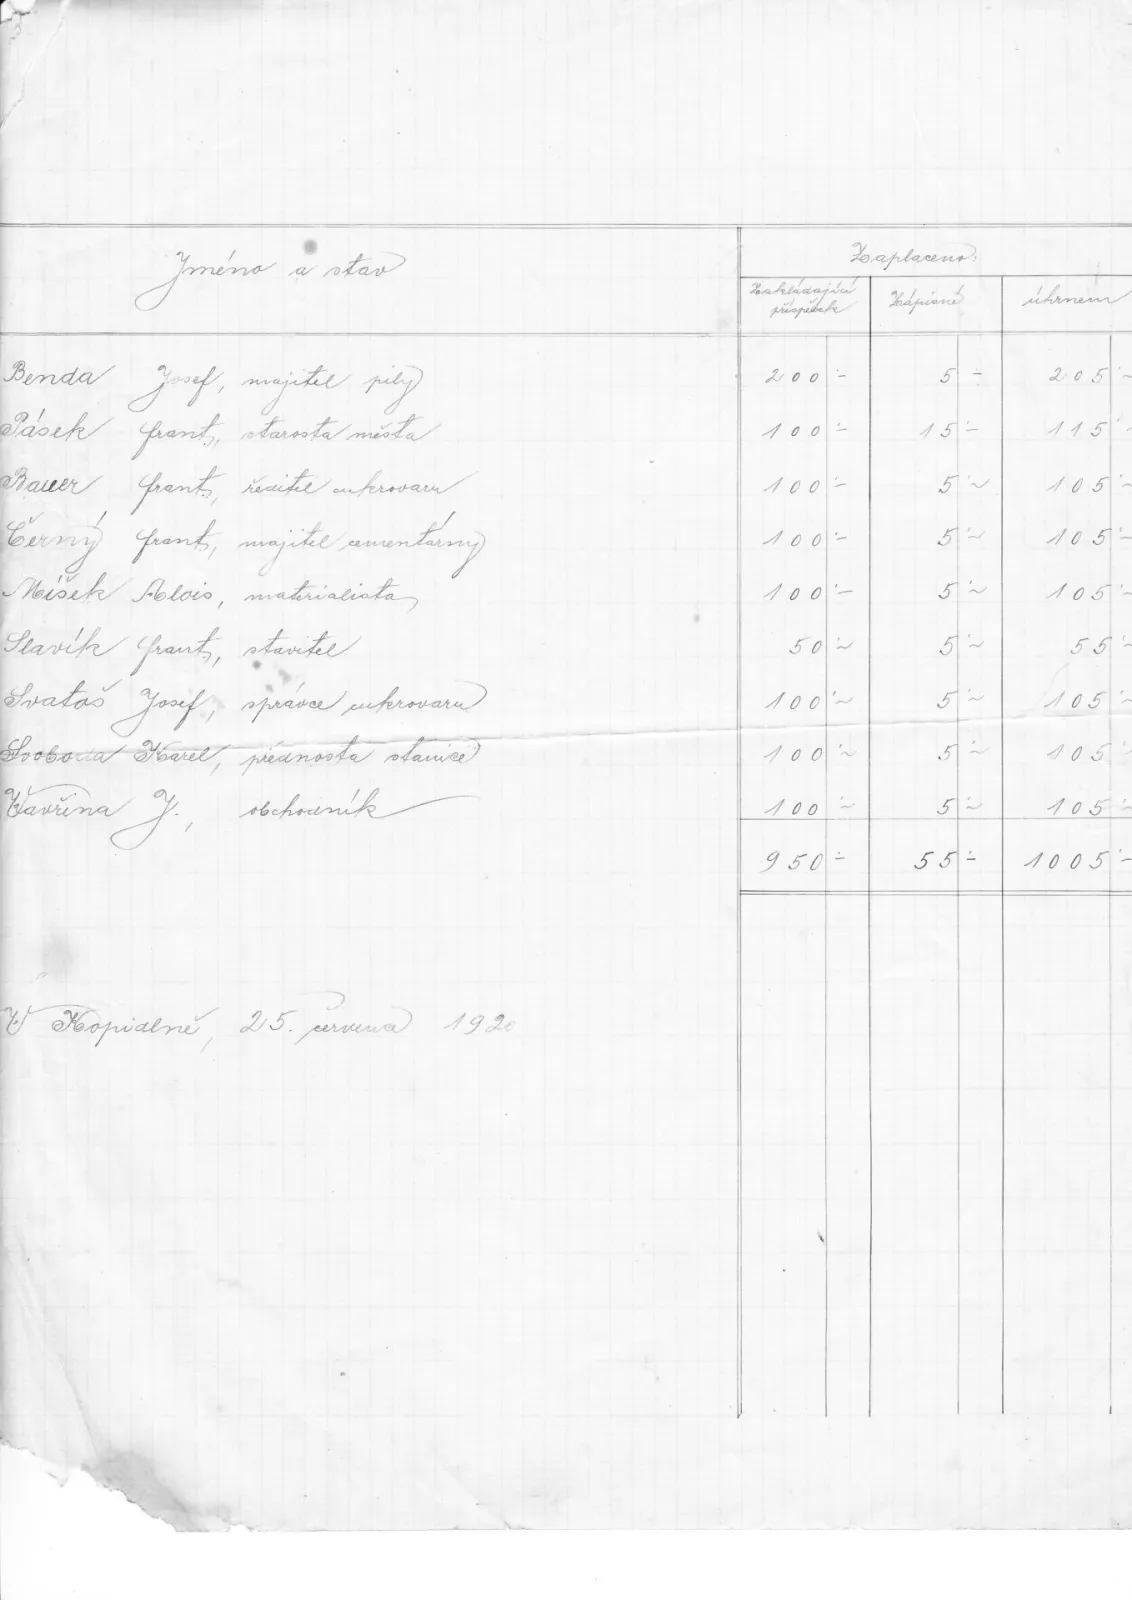 Jméno a stav
Zaplaceno:
Zakládající příspěvek Zápisné úhrnem
Benda Josef, majitel pily 200 :- 5 - 205 :-
Pásek Frant., starosta města 100 :- 15 :- 115 :-
Bauer Frant., ředitel cukrovaru 100 :- 5 :~ 105 :-
Černý Frant., majitel cementárny 100 :- 5 :~ 105 :-
Míšek Alois, materialista 100 :- 5 :~ 105 :-
Slavík Frant., stavitel 50 :~ 5 :~ 55 :-
Svatoš Josef, správce cukrovaru 100 :~ 5 :~ 105 :-
Svoboda Karel, přednosta stanice 100 :~ 5 :~ 105 :-
Vavřina J., obchodník 100 :~ 5 :~ 105 :-
950 :- 55 :- 1005 :-
V Kopidlně, 25. června 1920